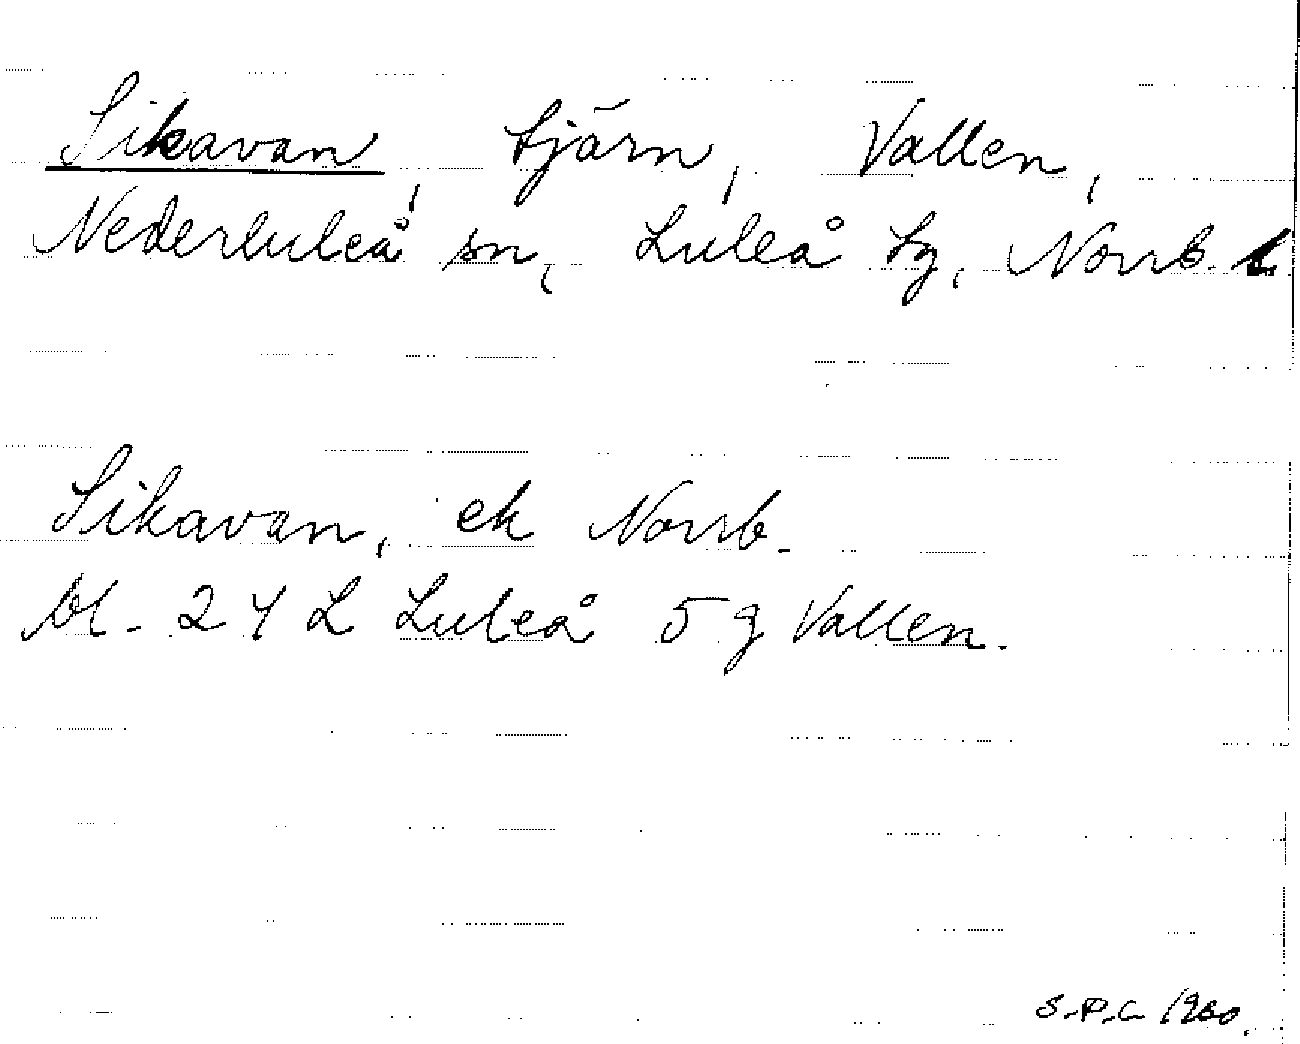 Sikavan, tjärn, Vallen,
Nederluleå sn, Luleå tg, Norrb. l.
Sikavan, ek Norrb.
bl. 24 L Luleå 5 g Vallen.
S.P.C. 1960.